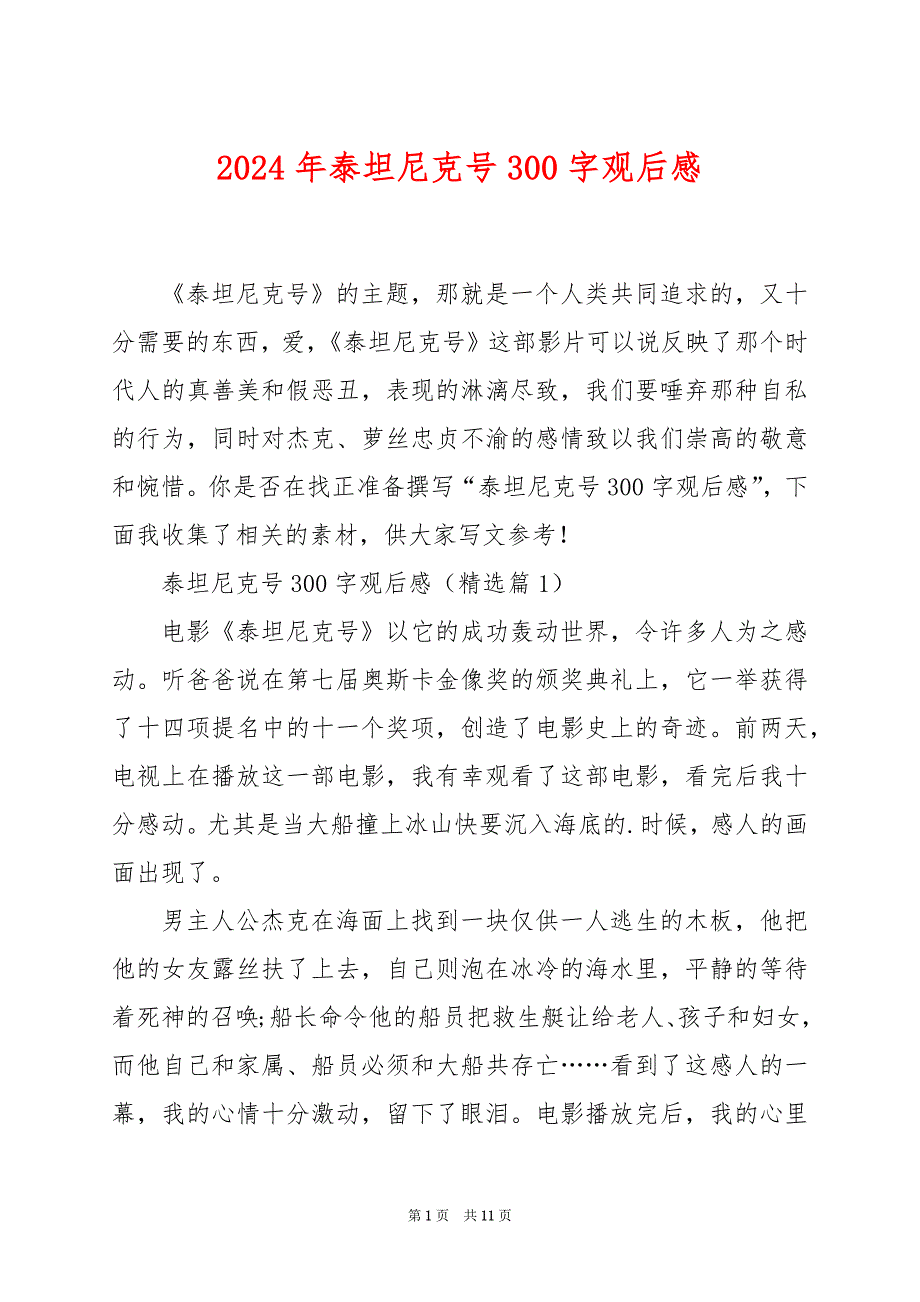 2024年泰坦尼克号300字观后感
《泰坦尼克号》的主题，那就是一个人类共同追求的，又十
分需要的东西，爱，《泰坦尼克号》这部影片可以说反映了那个时
代人的真善美和假恶丑，表现的淋漓尽致，我们要唾弃那种自私
的行为，同时对杰克、萝丝忠贞不渝的感情致以我们崇高的敬意
和惋惜。你是否在找正准备撰写“泰坦尼克号300字观后感”，下
面我收集了相关的素材，供大家写文参考！
泰坦尼克号300字观后感（精选篇1）
电影《泰坦尼克号》以它的成功轰动世界，令许多人为之感
动。听爸爸说在第七届奥斯卡金像奖的颁奖典礼上，它一举获得
了十四项提名中的十一个奖项，创造了电影史上的奇迹。前两天，
电视上在播放这一部电影，我有幸观看了这部电影，看完后我十
分感动。尤其是当大船撞上冰山快要沉入海底的.时候，感人的画
面出现了。
男主人公杰克在海面上找到一块仅供一人逃生的木板，他把
他的女友露丝扶了上去，自己则泡在冰冷的海水里，平静的等待
着死神的召唤;船长命令他的船员把救生艇让给老人、孩子和妇女，
而他自己和家属、船员必须和大船共存亡……看到了这感人的一
幕，我的心情十分激动，留下了眼泪。电影播放完后，我的心里
第1页 共11页